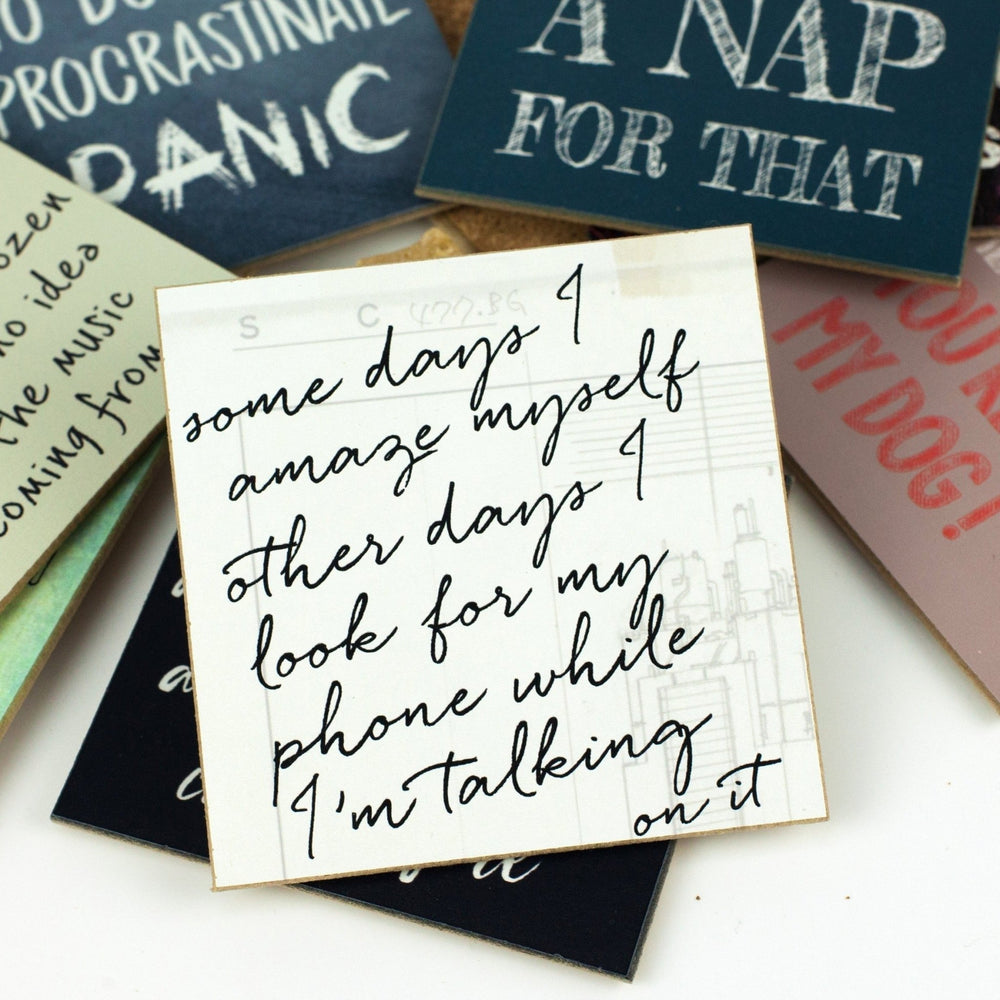 TO DO
PROCRASTINATE
PANIC
A NAP
FOR THAT
idea
the music
coming from
MY DOG!
S C 477.BG
some days I
amaze myself
other days I
look for my
phone while
I'm talking
on it